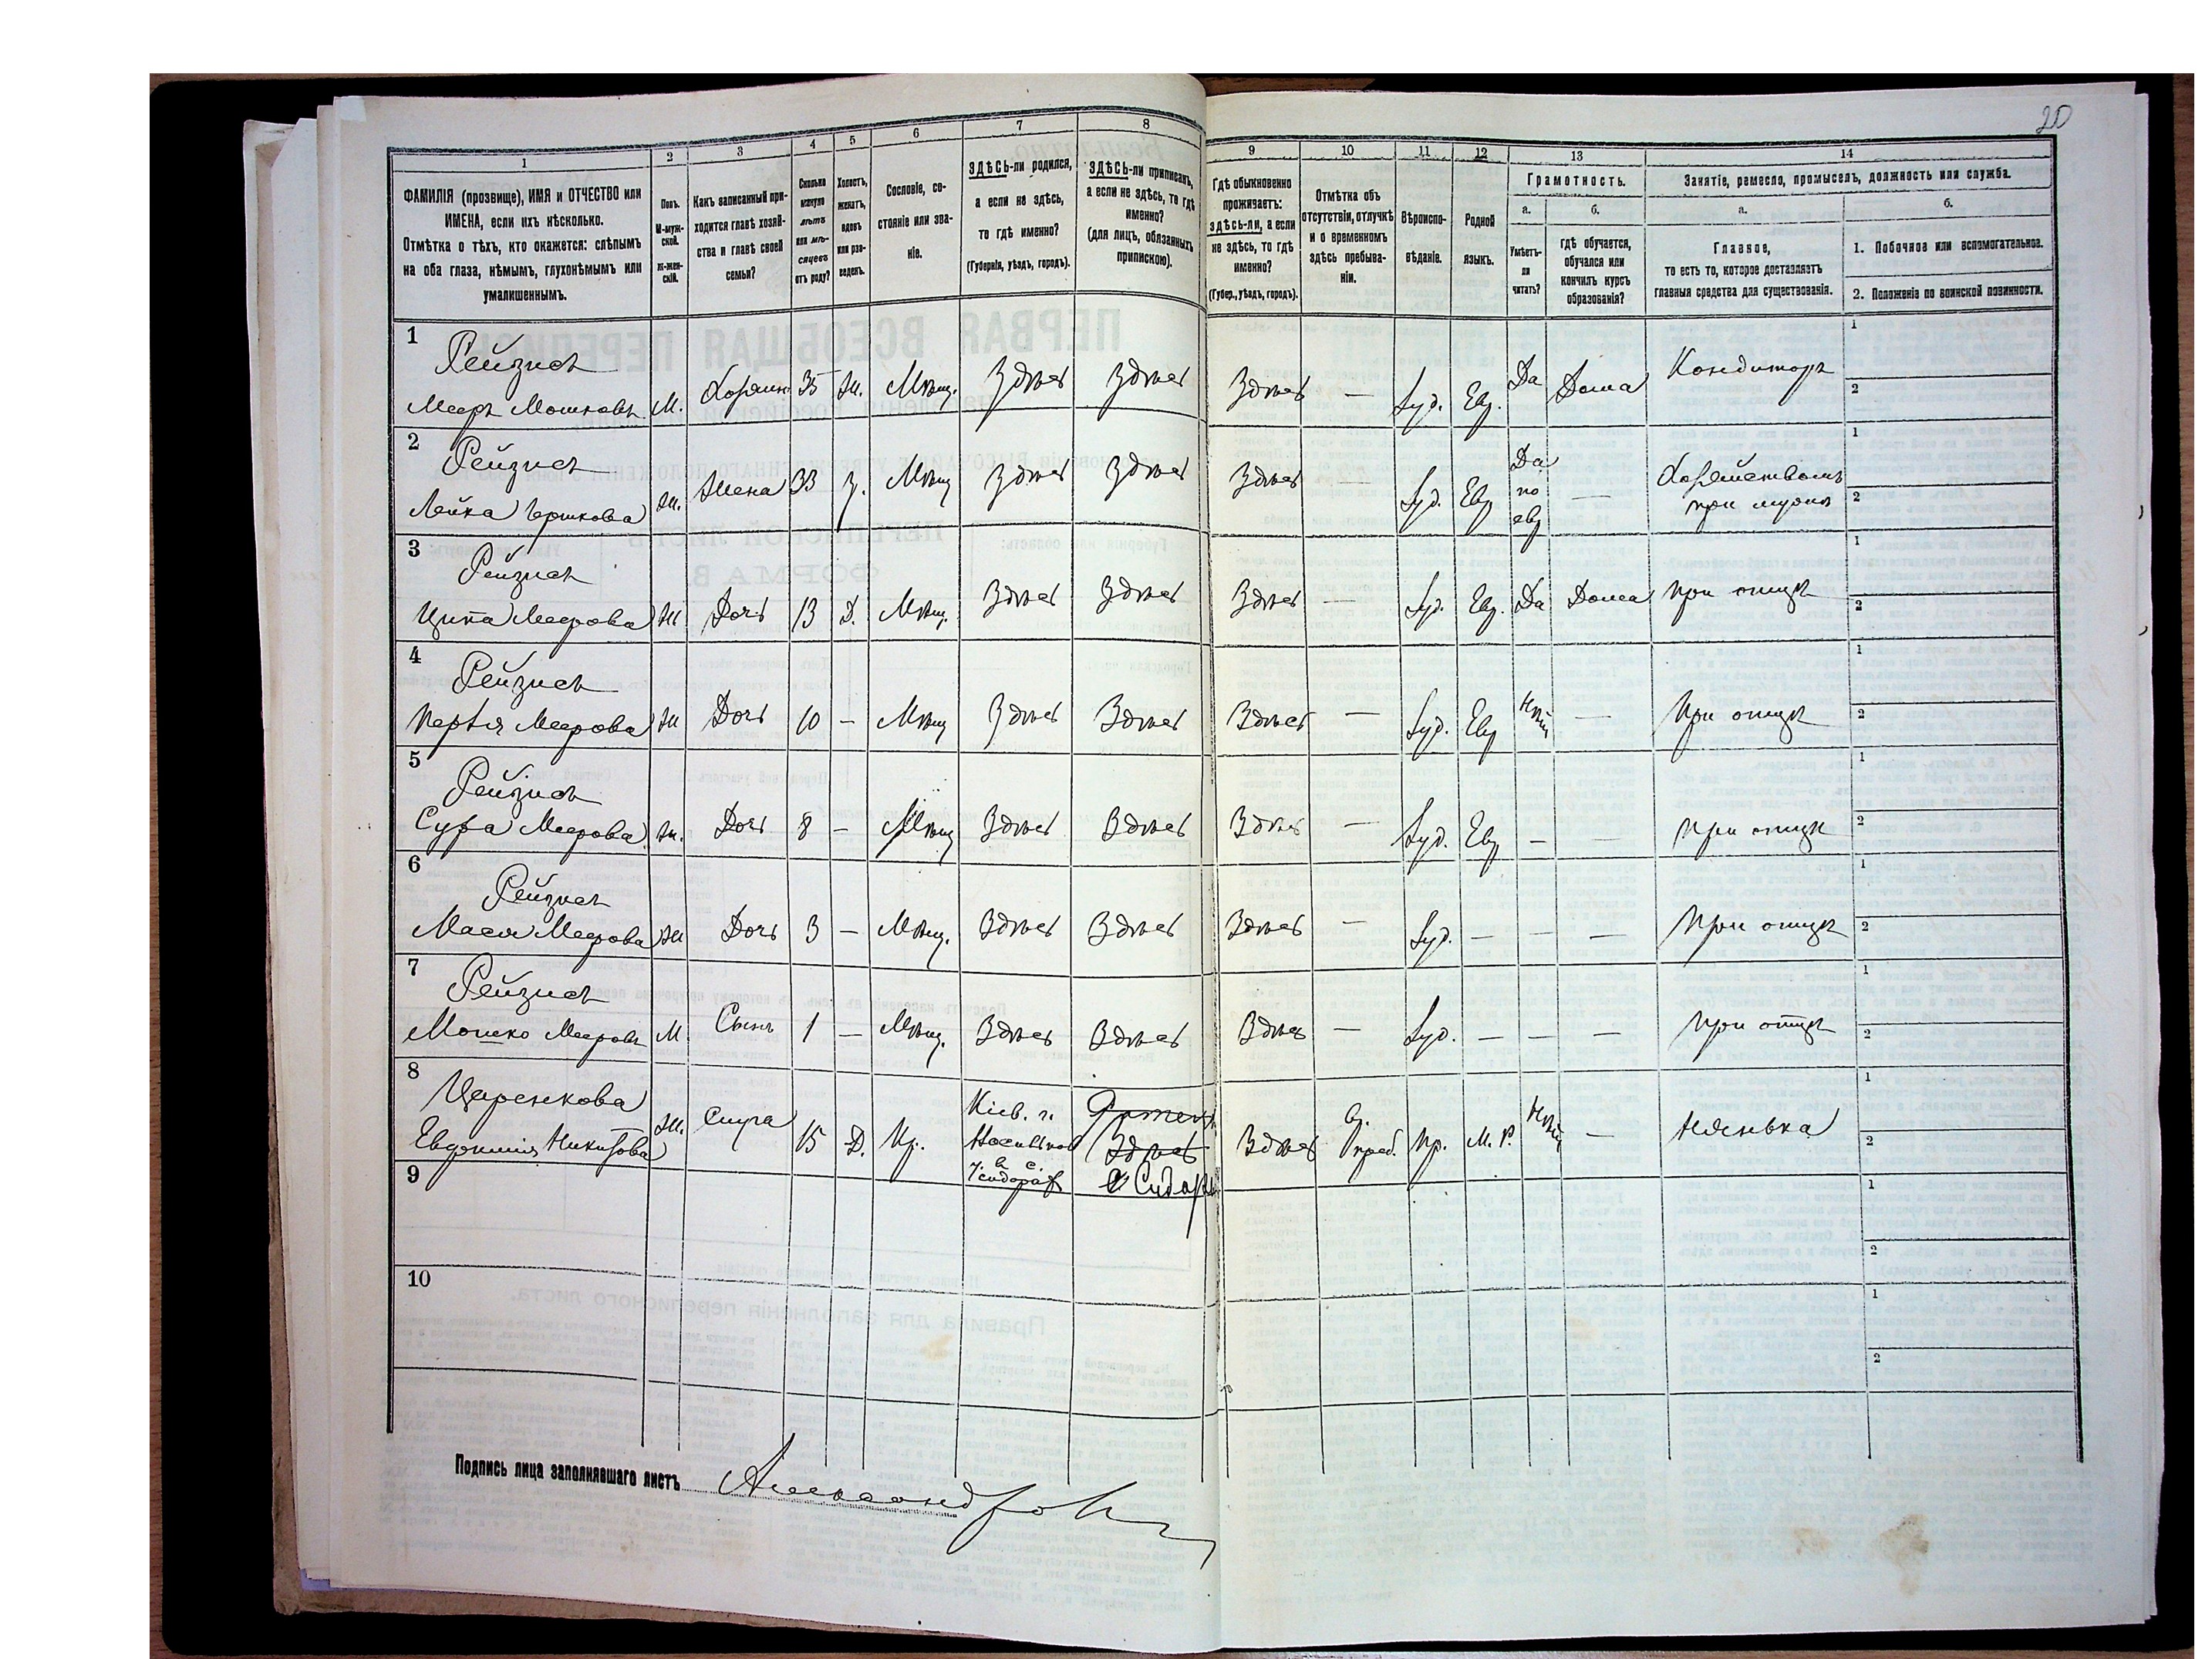 20
1 2 3 4 5 6 7 8 9 10 11 12 13 14
ФАМИЛІЯ (прозвище), ИМЯ и ОТЧЕСТВО или ИМЕНА, если ихъ нѣсколько.
Отмѣтка о тѣхъ, кто окажется: слѣпымъ на оба глаза, нѣмымъ, глухонѣмымъ или умалишеннымъ.
Полъ. М-мужской. Ж-женскій.
Какъ записанный приходится главѣ хозяйства и главѣ своей семьи?
Сколько минуло лѣтъ или мѣсяцевъ отъ роду?
Холостъ, женатъ, вдовъ или разведенъ.
Сословіе, состояніе или званіе.
ЗДѢСЬ-ли родился, а если не здѣсь, то гдѣ именно?
(Губернія, уѣздъ, городъ).
ЗДѢСЬ-ли приписанъ, а если не здѣсь, то гдѣ именно?
(для лицъ, обязанныхъ припискою).
Гдѣ обыкновенно проживаетъ: здѣсь-ли, а если не здѣсь, то гдѣ именно?
(Губер., уѣздъ, городъ).
Отмѣтка объ отсутствіи, отлучкѣ и о временномъ здѣсь пребываніи.
Вѣроисповѣданіе.
Родной языкъ.
Грамотность.
а. Умѣетъ-ли читать?
б. гдѣ обучается, обучался или кончилъ курсъ образованія?
Занятіе, ремесло, промыселъ, должность или служба.
а. Главное, то есть то, которое доставляетъ главныя средства для существованія.
б.
1. Побочное или вспомогательное.
2. Положеніе по воинской повинности.
1 Рейзисъ Мееръ Мошковъ М. Хозяинъ 35 Ж. Мѣщ. Здѣсь Здѣсь Здѣсь — Іуд. Евр. Да Дома Кондиторъ 1 2
2 Рейзисъ Лейка Ж. Жена 33 З. Мѣщ Здѣсь Здѣсь Здѣсь — Іуд. Евр Да по евр — Хозяйствомъ при мужѣ 1 2
3 Рейзисъ Ципа Меерова Ж Дочь 13 Д. Мѣщ. Здѣсь Здѣсь Здѣсь — Іуд. Евр. Да Дома При отцѣ 1 2
4 Рейзисъ Меерова Ж Дочь 10 — Мѣщ Здѣсь Здѣсь Здѣсь — Іуд. Евр Нѣтъ — При отцѣ 1 2
5 Рейзисъ Сура Меерова Ж. Дочь 8 — Мѣщ Здѣсь Здѣсь Здѣсь — Іуд. Евр — — При отцѣ 1 2
6 Рейзисъ Мася Меерова Ж Дочь 3 — Мѣщ. Здѣсь Здѣсь Здѣсь — Іуд. — — — При отцѣ 1 2
7 Рейзисъ Мошко Мееровъ М Сынъ 1 — Мѣщ. Здѣсь Здѣсь Здѣсь — Іуд. — — — При отцѣ 1 2
8 Царенкова Евдокимія Никитова Ж. Слуга 15 Д. Кр. Кіев. г. Здѣсь Здѣсь Вр. преб. Пр. М. Р. Нѣтъ — Нянька 1 2
9 1 2
10 1 2
Подпись лица заполнявшаго листъ